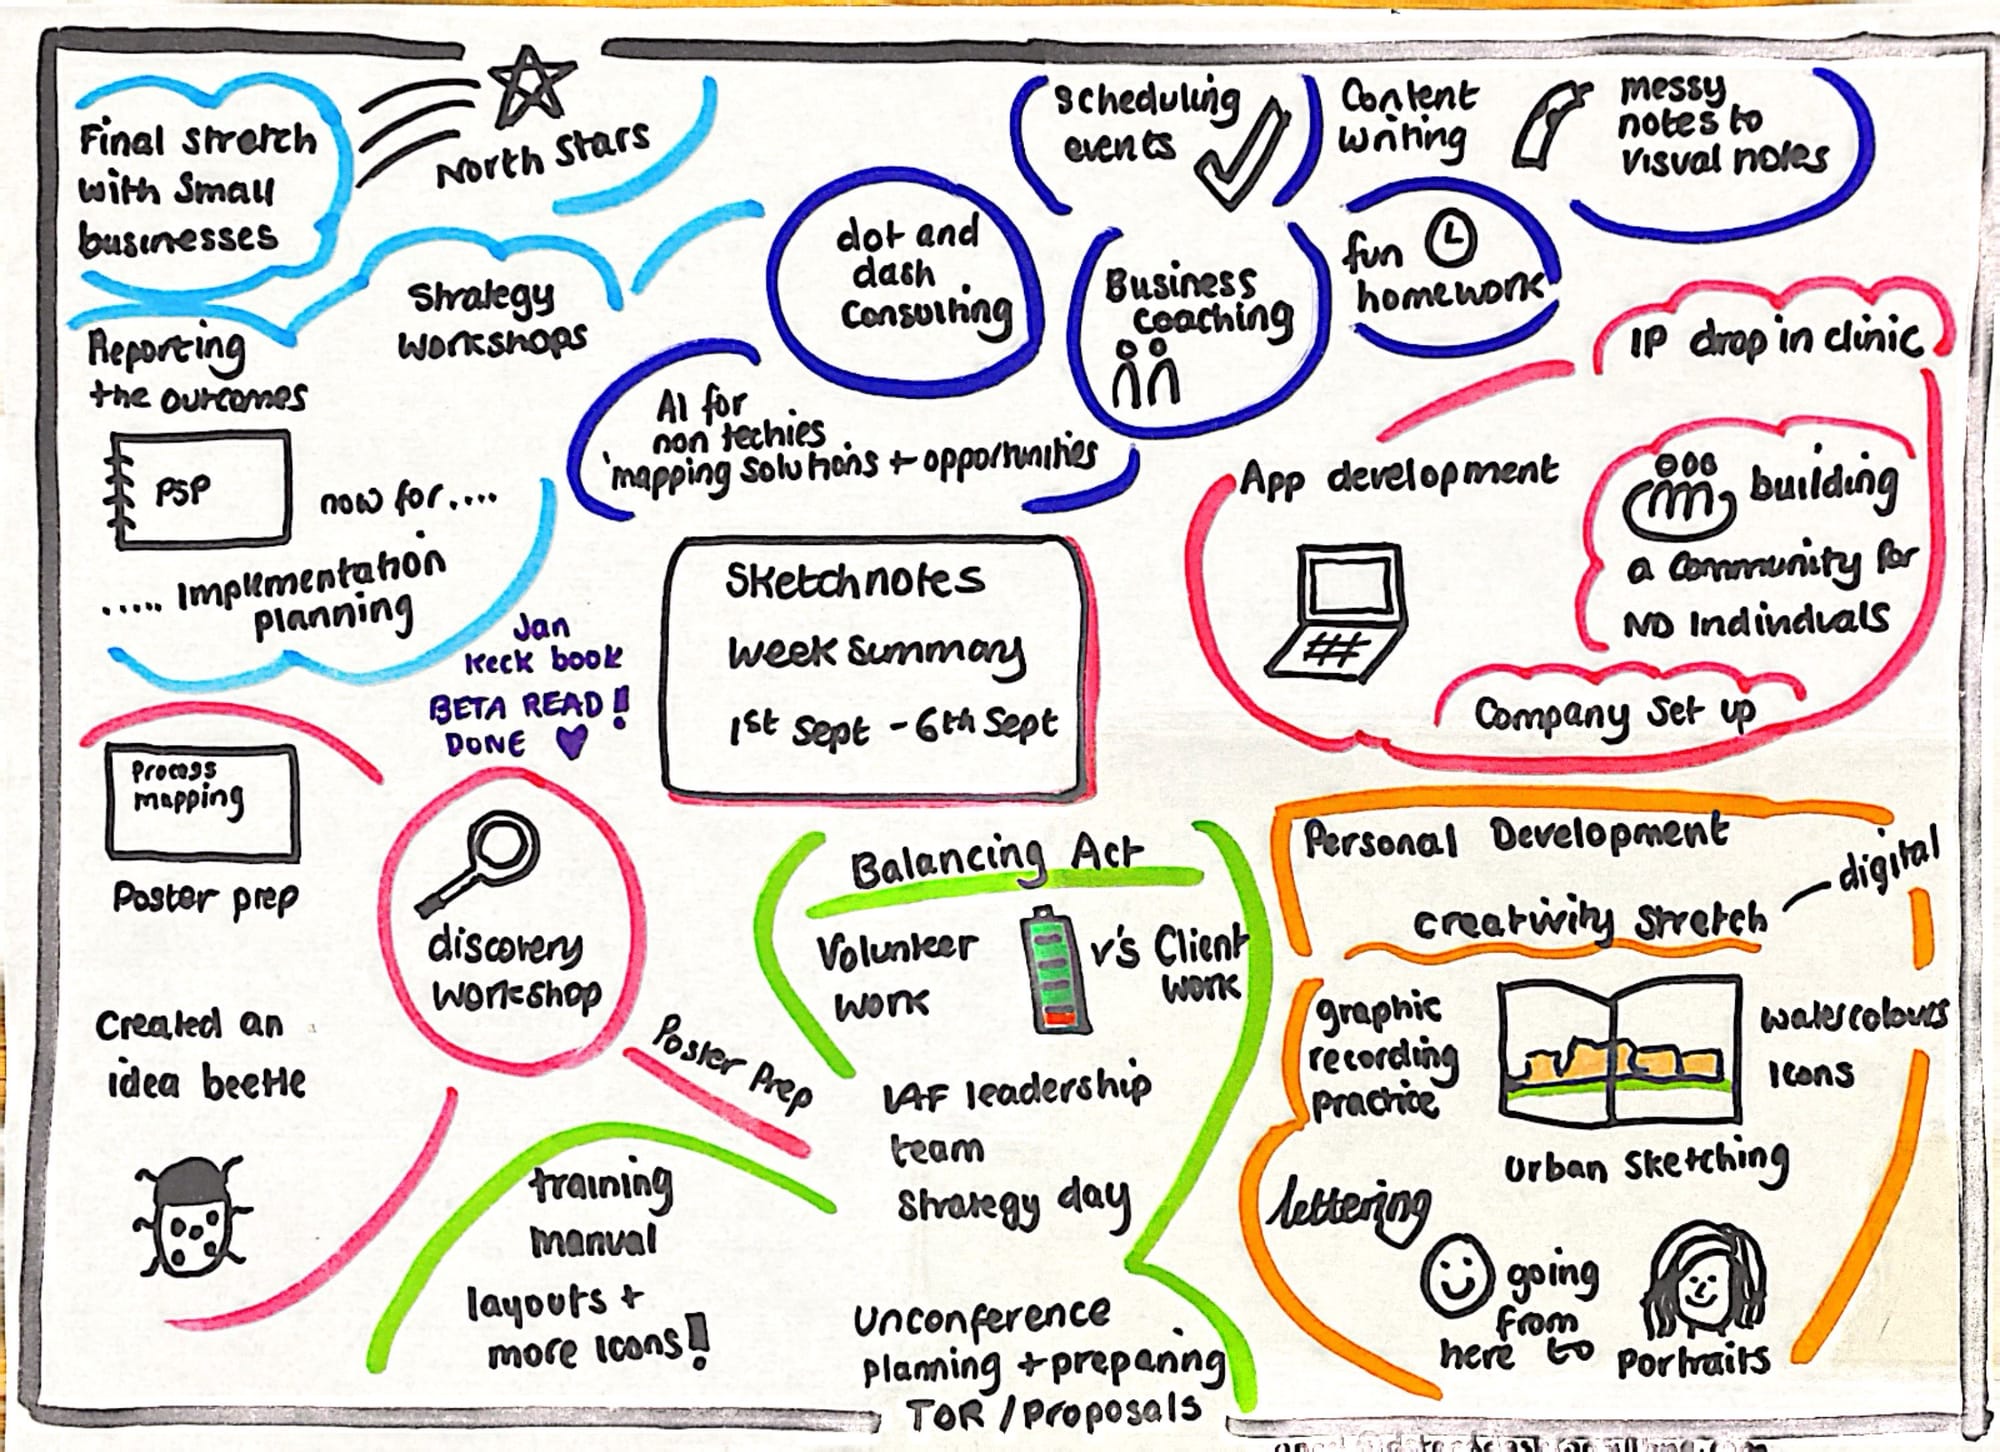 Final stretch
with small
businesses
North Stars
Strategy
Workshops
Reporting
the outcomes
PSP
now for....
..... Implementation
planning
scheduling
events
Content
writing
messy
notes to
visual notes
dot and
dash
Consulting
Business
coaching
fun
homework
AI for
non techies
'mapping solutions + opportunities
IP drop in clinic
App development
building
a community for
ND Individuals
Company set up
Jan
Keck book
BETA READ!
DONE
Sketchnotes
Week Summary
1st Sept - 6th Sept
Process
mapping
Poster prep
discovery
workshop
Poster Prep
Created an
idea beetle
training
manual
layouts +
more icons!
Balancing Act
Volunteer
work
v's Client
work
IAF leadership
team
Strategy day
Unconference
planning + preparing
TOR / Proposals
Personal Development
digital
creativity stretch
graphic
recording
practice
watercolours
Icons
Urban Sketching
lettering
going
from
here to
portraits